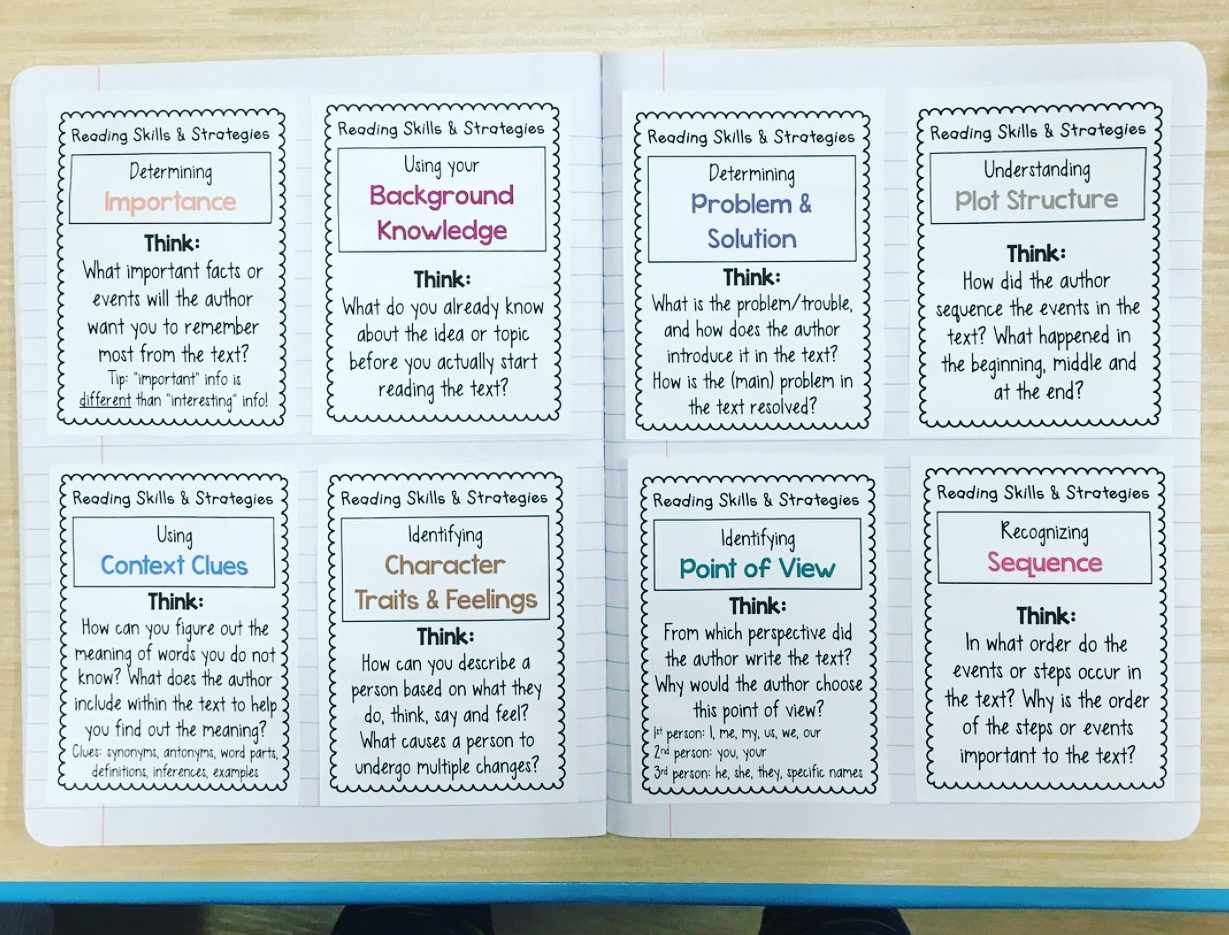 Reading Skills & Strategies
Determining
Importance
Think:
What important facts or
events will the author
want you to remember
most from the text?
Tip: "important" info is
different than "interesting" info!
Reading Skills & Strategies
Using your
Background
Knowledge
Think:
What do you already know
about the idea or topic
before you actually start
reading the text?
Reading Skills & Strategies
Determining
Problem &
Solution
Think:
What is the problem/trouble,
and how does the author
introduce it in the text?
How is the (main) problem in
the text resolved?
Reading Skills & Strategies
Understanding
Plot Structure
Think:
How did the author
sequence the events in the
text? What happened in
the beginning, middle and
at the end?
Reading Skills & Strategies
Using
Context Clues
Think:
How can you figure out the
meaning of words you do not
know? What does the author
include within the text to help
you find out the meaning?
Clues: synonyms, antonyms, word parts,
definitions, inferences, examples
Reading Skills & Strategies
Identifying
Character
Traits & Feelings
Think:
How can you describe a
person based on what they
do, think, say and feel?
What causes a person to
undergo multiple changes?
Reading Skills & Strategies
Identifying
Point of View
Think:
From which perspective did
the author write the text?
Why would the author choose
this point of view?
1st person: I, me, my, us, we, our
2nd person: you, your
3rd person: he, she, they, specific names
Reading Skills & Strategies
Recognizing
Sequence
Think:
In what order do the
events or steps occur in
the text? Why is the order
of the steps or events
important to the text?